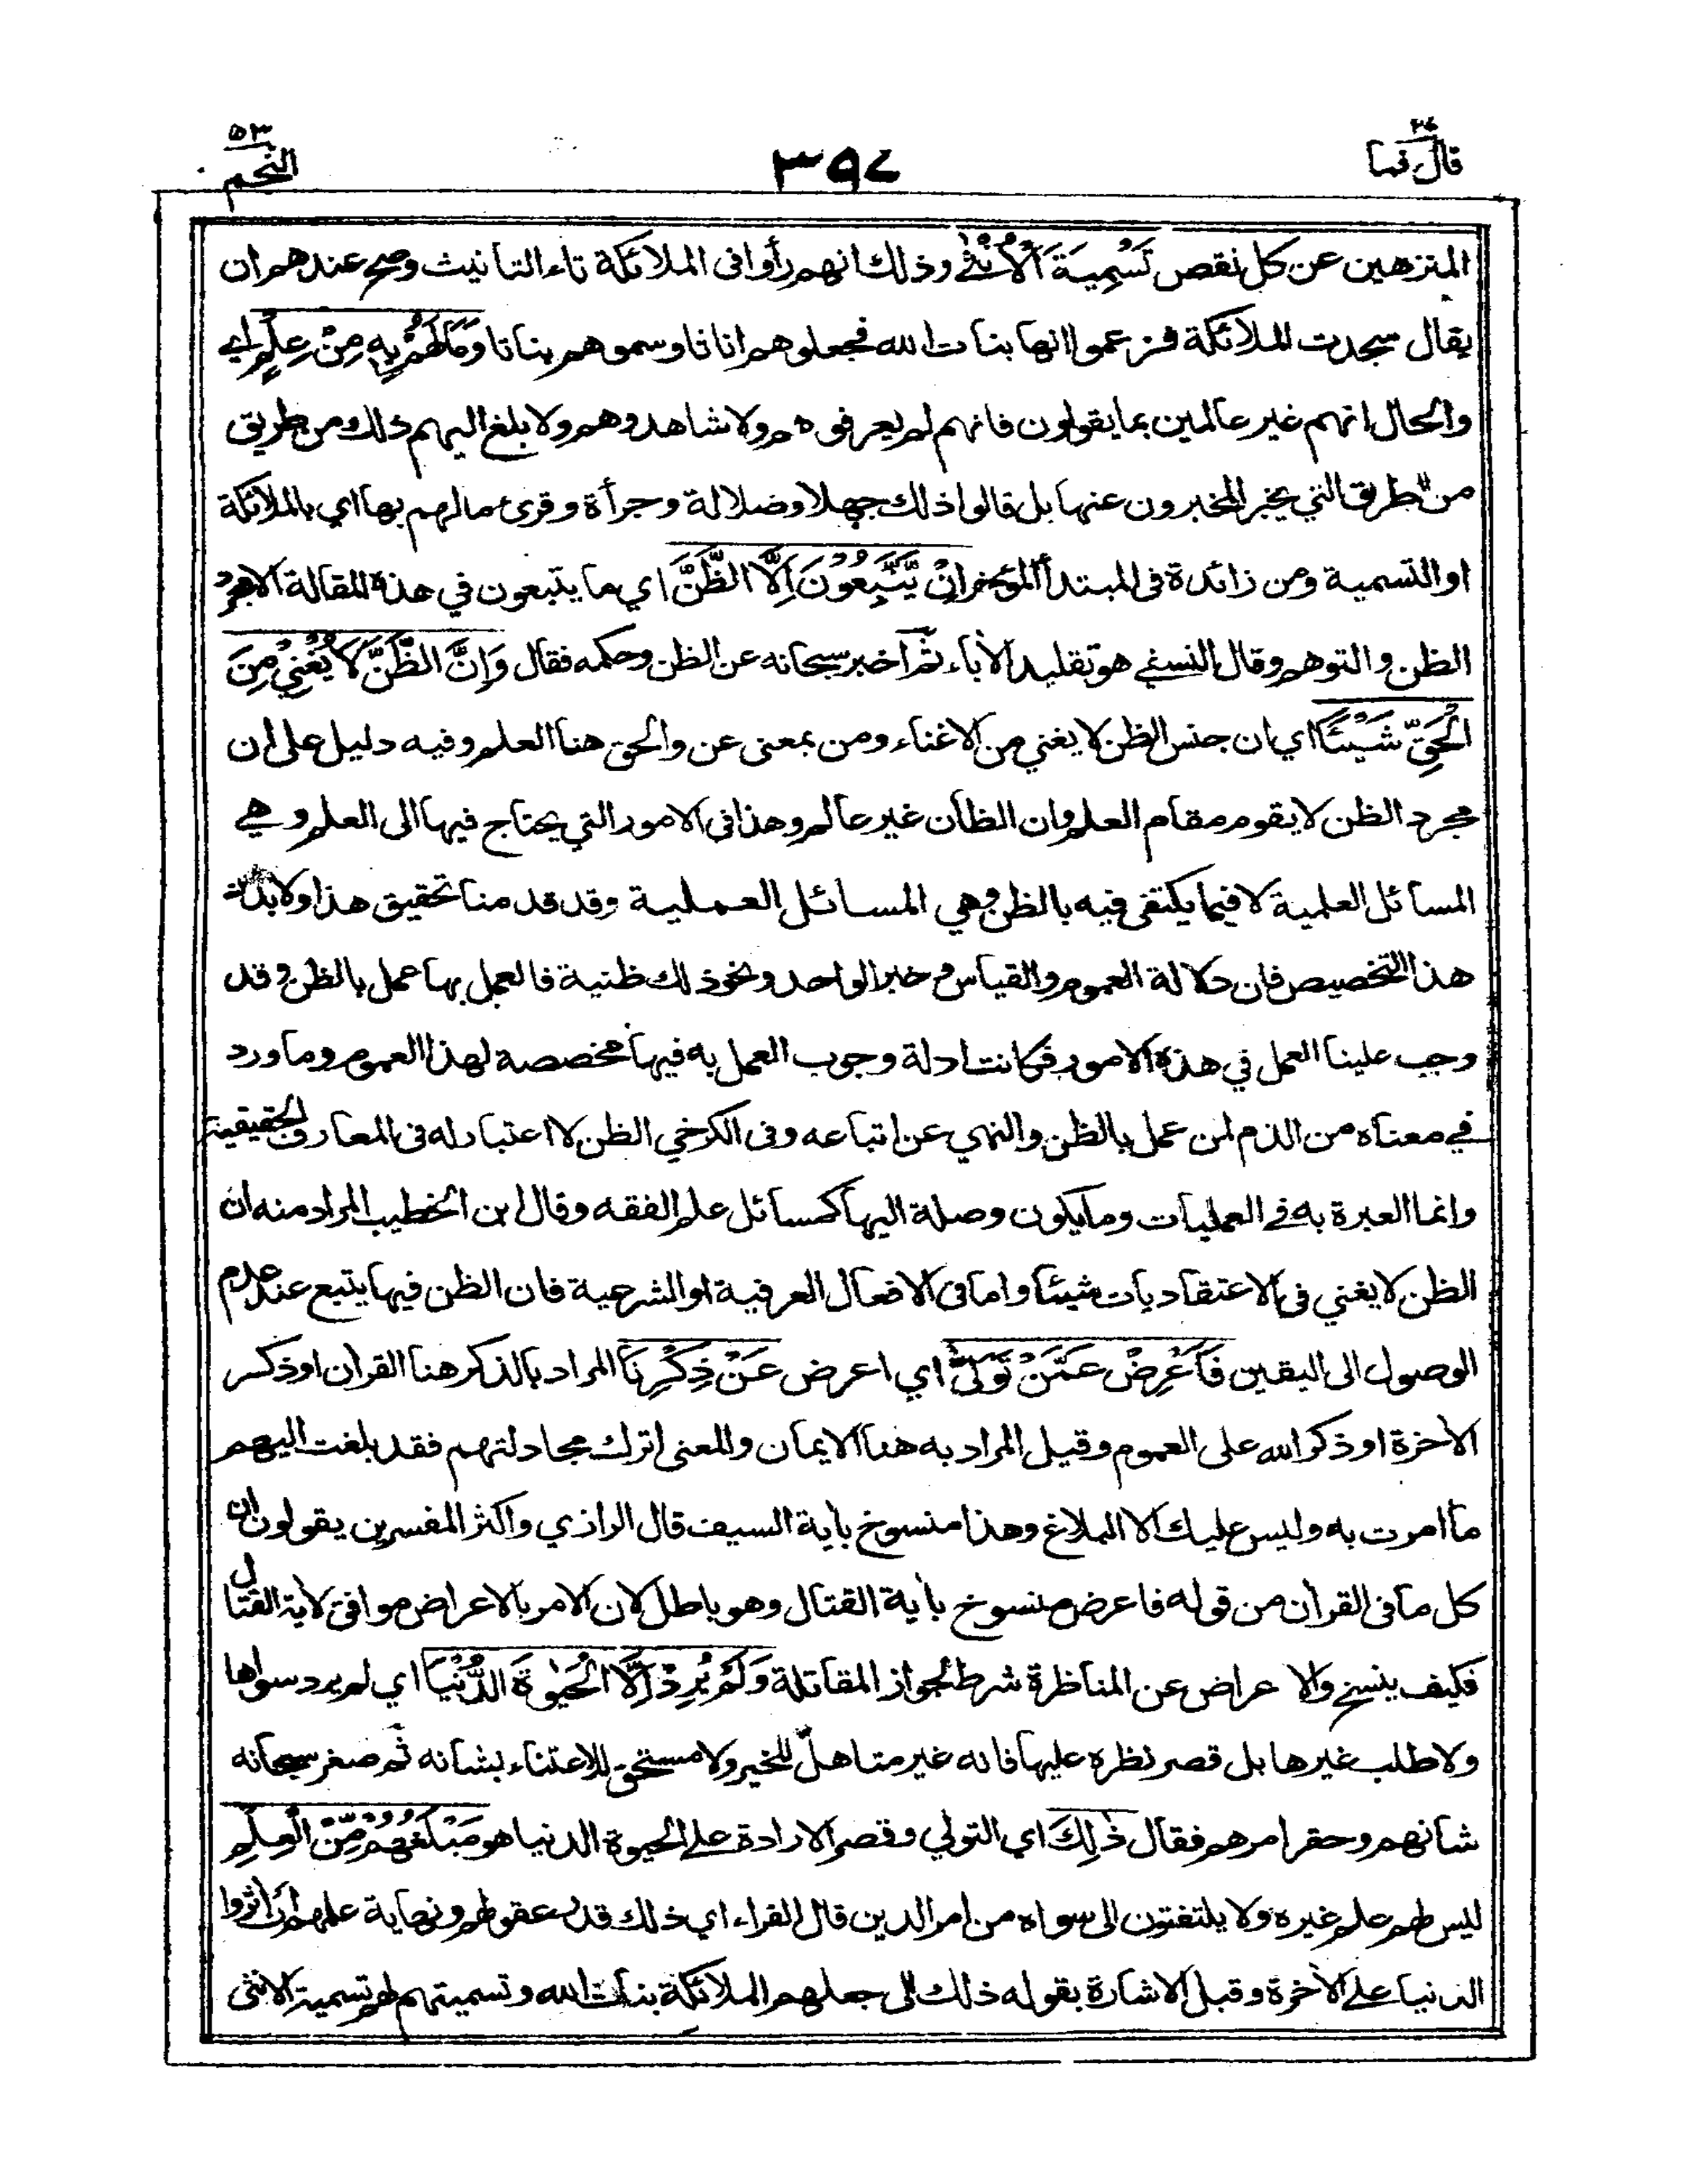 ٢٧
قال فما
٣٩٨
٥٣
النجم
المنزهين عن كل نقص تَسْمِيَةَ الْأُنْثٰى وذلك انهم رأوا فى الملائكة تاء التانيث وصح عندهم ان
يقال سجدت الملائكة فزعموا انها بنات الله فجعلوهم اناثا وسموهم بناتا وَمَا لَهُمْ بِهٖ مِنْ عِلْمٍ اي
والحال انهم غير عالمين بما يقولون فانهم لم يعرفوهم ولا شاهدوهم ولا بلغ اليهم ذلك من طريق
من الطرق التي يخبر المخبرون عنها بل قالوا ذلك جهلا وضلالة وجرأة وقرئ ما لهم بها اي بالملائكة
او التسمية ومن زائدة فى المبتدأ المؤخر اِنْ يَّتَّبِعُوْنَ اِلَّا الظَّنَّ اي ما يتبعون في هذه المقالة الا مجرد
الظن والتوهم وقال النسفي هو تقليد الأباء ثم اخبر سبحانه عن الظن وحكمه فقال وَاِنَّ الظَّنَّ لَا يُغْنِيْ مِنَ
الْحَقِّ شَيْئًا اي ان جنس الظن لا يغني من الاغناء ومن بمعنى عن والحق هنا العلم وفيه دليل على ان
مجرد الظن لا يقوم مقام العلم وان الظان غير عالم وهذا فى الامور التي يحتاج فيها الى العلم وهي
المسائل العلمية لا فيما يكتفى فيه بالظن وهي المسائل العملية وقد قدمنا تحقيق هذا ولا بد من
هذا التخصيص فان دلالة العموم والقياس وخبر الواحد ونحو ذلك ظنية فالعمل بها عمل بالظن وقد
وجب علينا العمل في هذه الامور فكانت ادلة وجوب العمل به فيها مخصصة لهذا العموم وما ورد
في معناه من الذم لمن عمل بالظن والنهي عن اتباعه وفى الكرخي الظن لا اعتبار له فى المعارف الحقيقية
وانما العبرة به في العمليات وما يكون وصلة اليها كمسائل علم الفقه وقال ابن الخطيب المراد منه ان
الظن لا يغني فى الاعتقاديات شيئا واما فى الافعال العرفية او الشرعية فان الظن فيها يتبع عند عدم
الوصول الى اليقين فَاَعْرِضْ عَمَّنْ تَوَلّٰى اي اعرض عَنْ ذِكْرِنَا المراد بالذكر هنا القرأن او ذكر
الاخرة او ذكر الله على العموم وقيل المراد به هنا الايمان والمعنى اترك مجادلتهم فقد بلغت اليهم
ما امرت به وليس عليك الا البلاغ وهذا منسوخ بأية السيف قال الرازي واكثر المفسرين يقولون ان
كل ما فى القرأن من قوله فاعرض منسوخ بأية القتال وهو باطل لان الامر بالاعراض موافق لأية القتال
فكيف ينسخ والاعراض عن المناظرة شرط لجواز المقاتلة وَلَمْ يُرِدْ اِلَّا الْحَيٰوةَ الدُّنْيَا اي لم يرد سواها
ولا طلب غيرها بل قصر نظره عليها فانه غير متاهل للخير ولا مستحق للاعتناء بشانه ثم صغر سبحانه
شانهم وحقر امرهم فقال ذٰلِكَ اي التولي وقصر الارادة على الحيوة الدنيا هو مَبْلَغُهُمْ مِّنَ الْعِلْمِ
ليس لهم علم غيره ولا يلتفتون الى سواه من امر الدين قال الفراء اي ذلك قدر عقولهم ونهاية علمهم ان أثروا
الدنيا على الأخرة وقيل الاشارة بقوله ذلك الى جعلهم الملائكة بنات الله وتسميتهم لهم تسمية الانثى